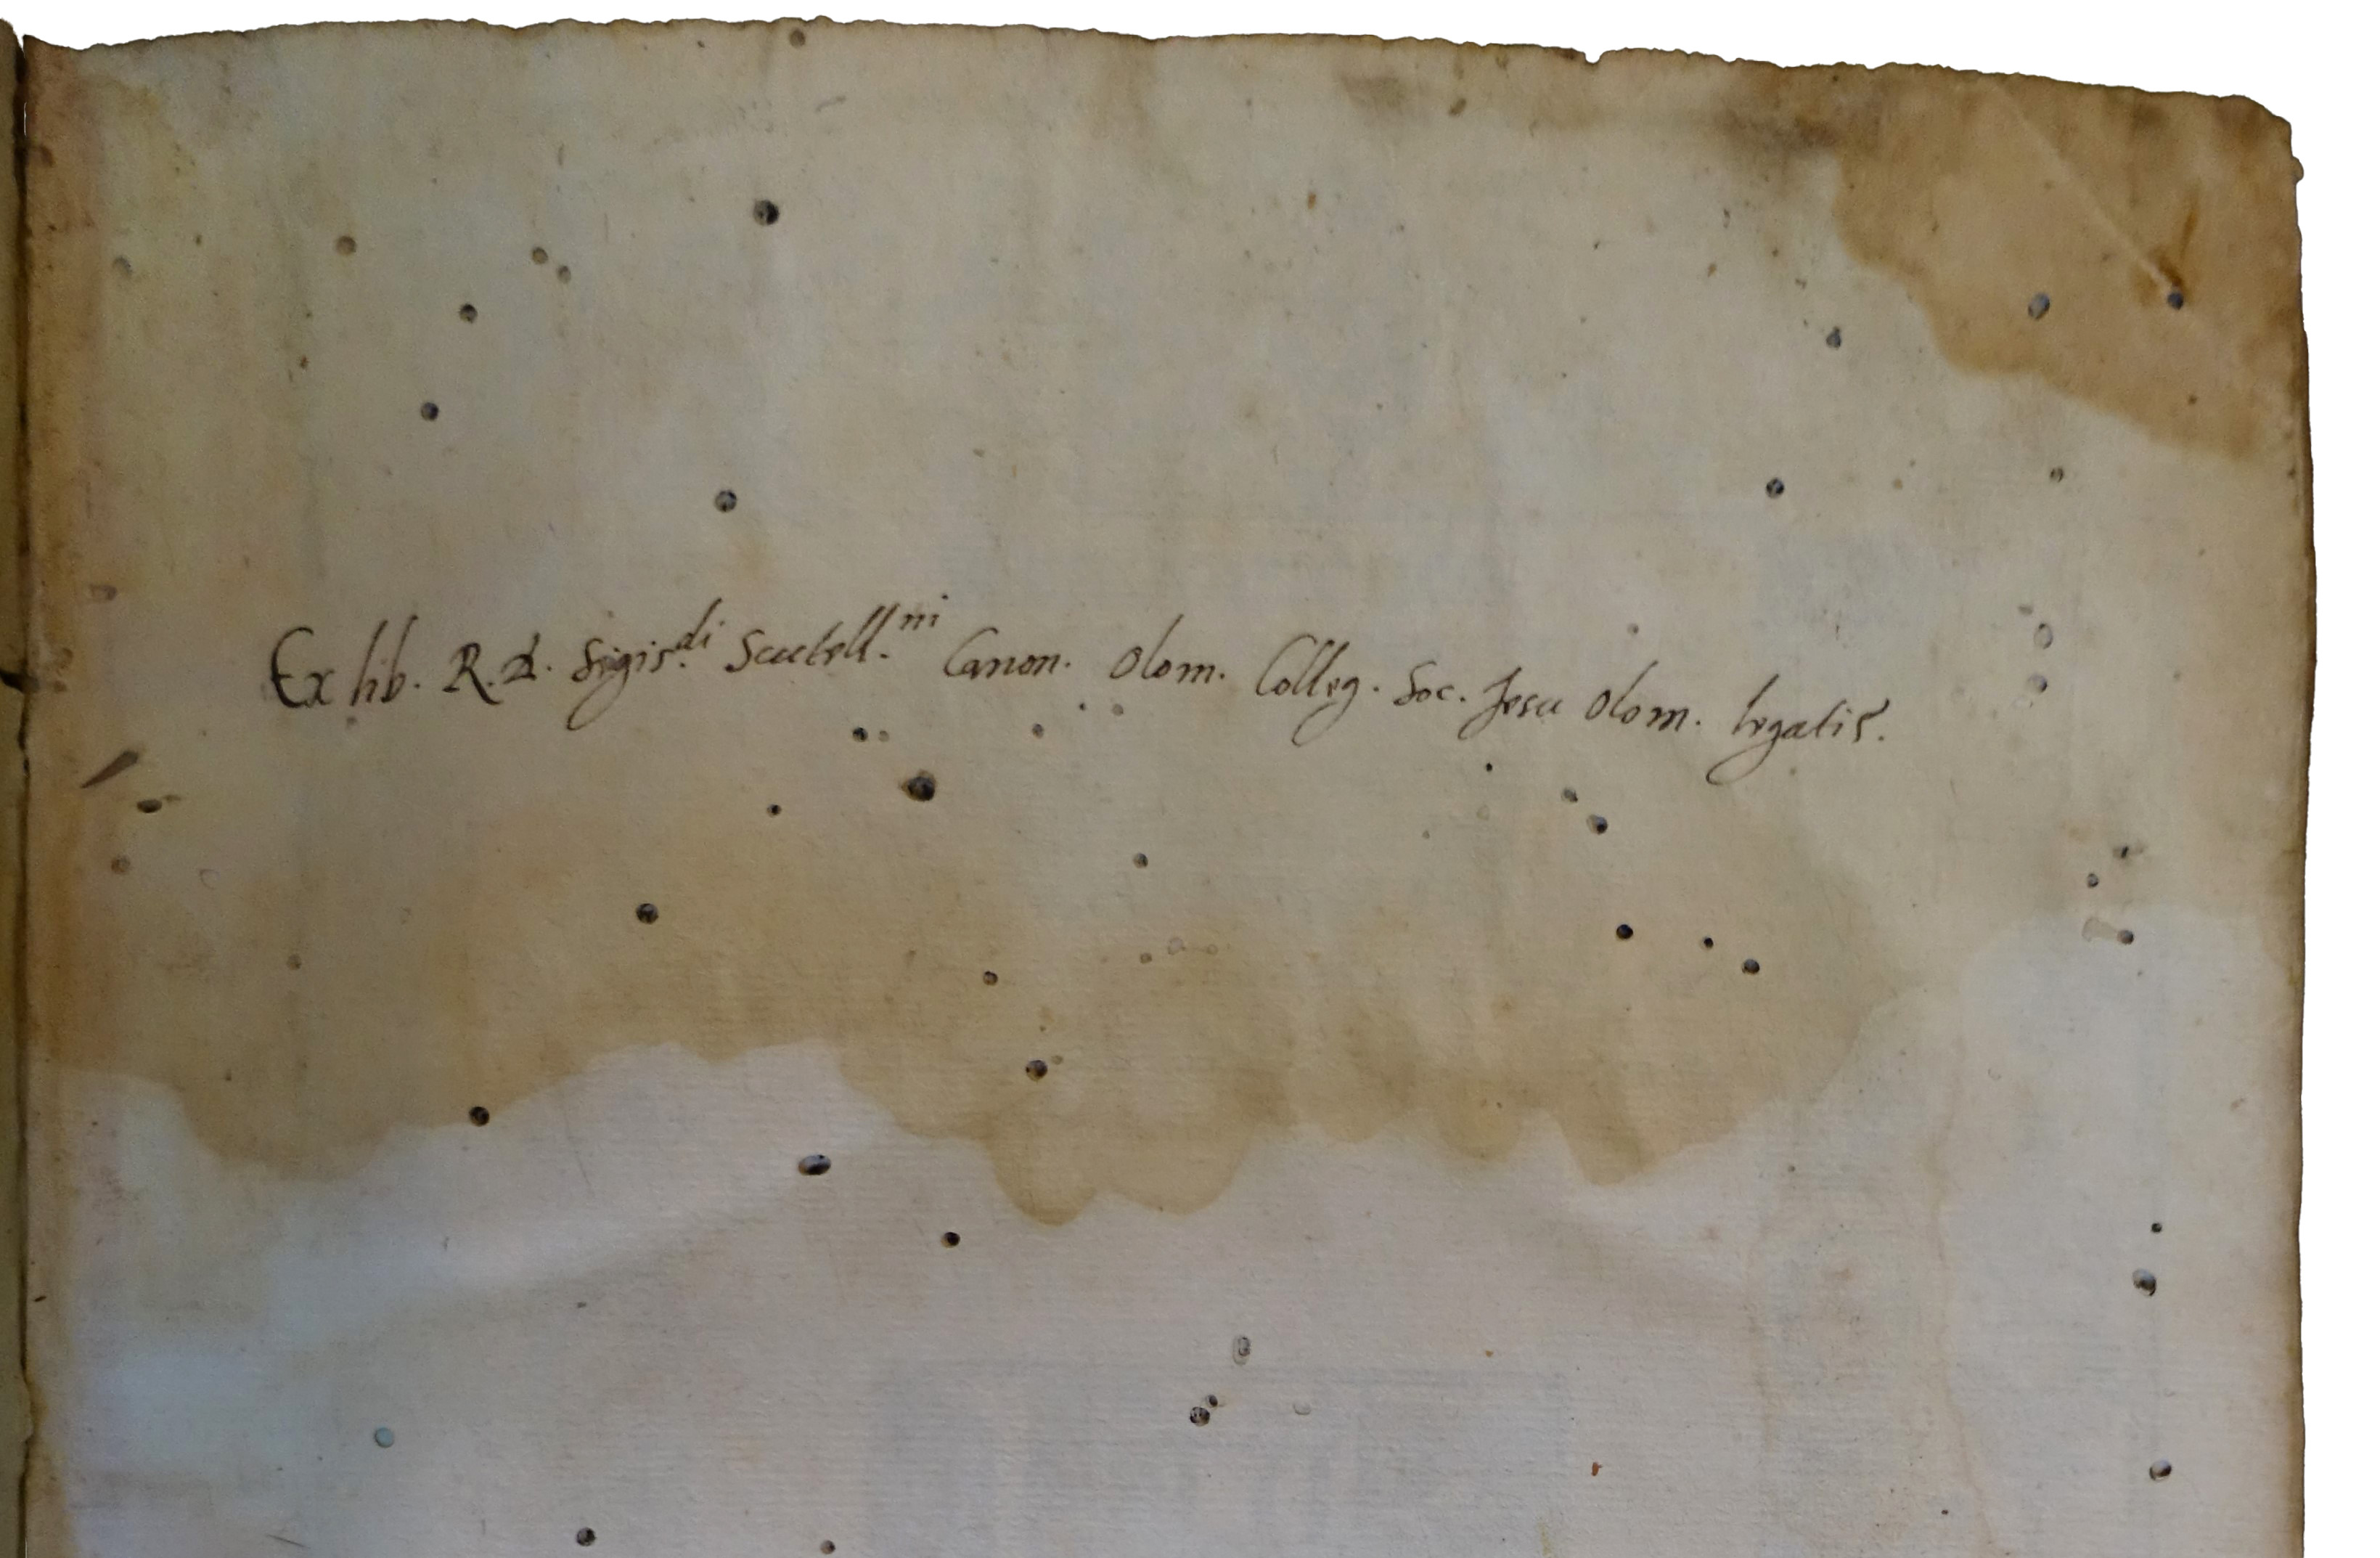 Ex lib. R. D. Sigis.di Scutell.ni Canon. Olom. Colleg. Soc. Jesu Olom. legatis.